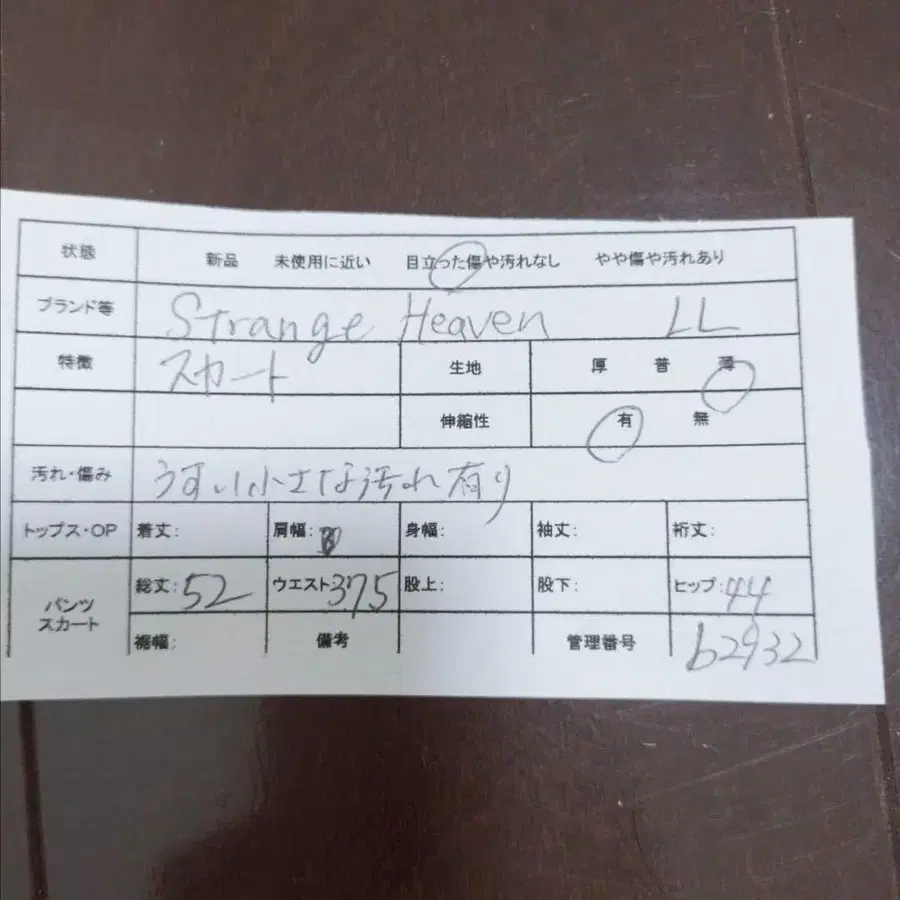 状態 新品 未使用に近い 目立った傷や汚れなし やや傷や汚れあり
ブランド等 Strange Heaven LL
特徴 スカート 生地 厚 普 薄
伸縮性 有 無
汚れ・傷み うすい小さな汚れ有り
トップス・OP 着丈: 肩幅: 身幅: 袖丈: 裄丈:
パンツ スカート 総丈:52 ウエスト375 股上: 股下: ヒップ:44
裾幅: 備考 管理番号 b2932